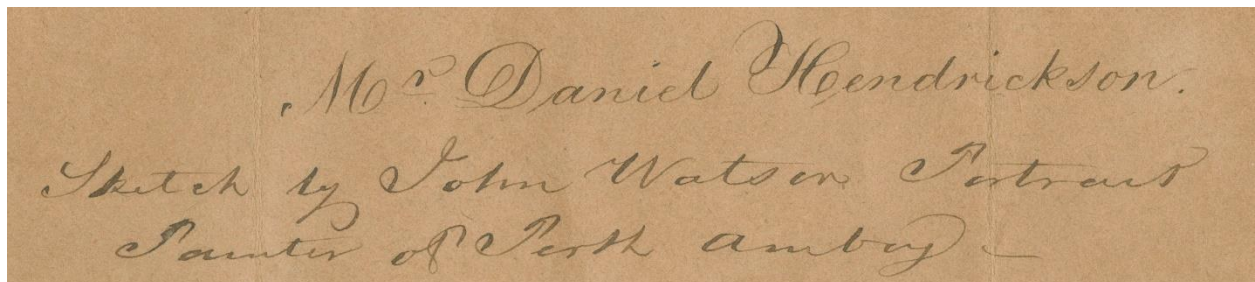 Mr. Daniel Hendrickson.
Sketch by John Watson Portrait
Painter of Perth Amboy —